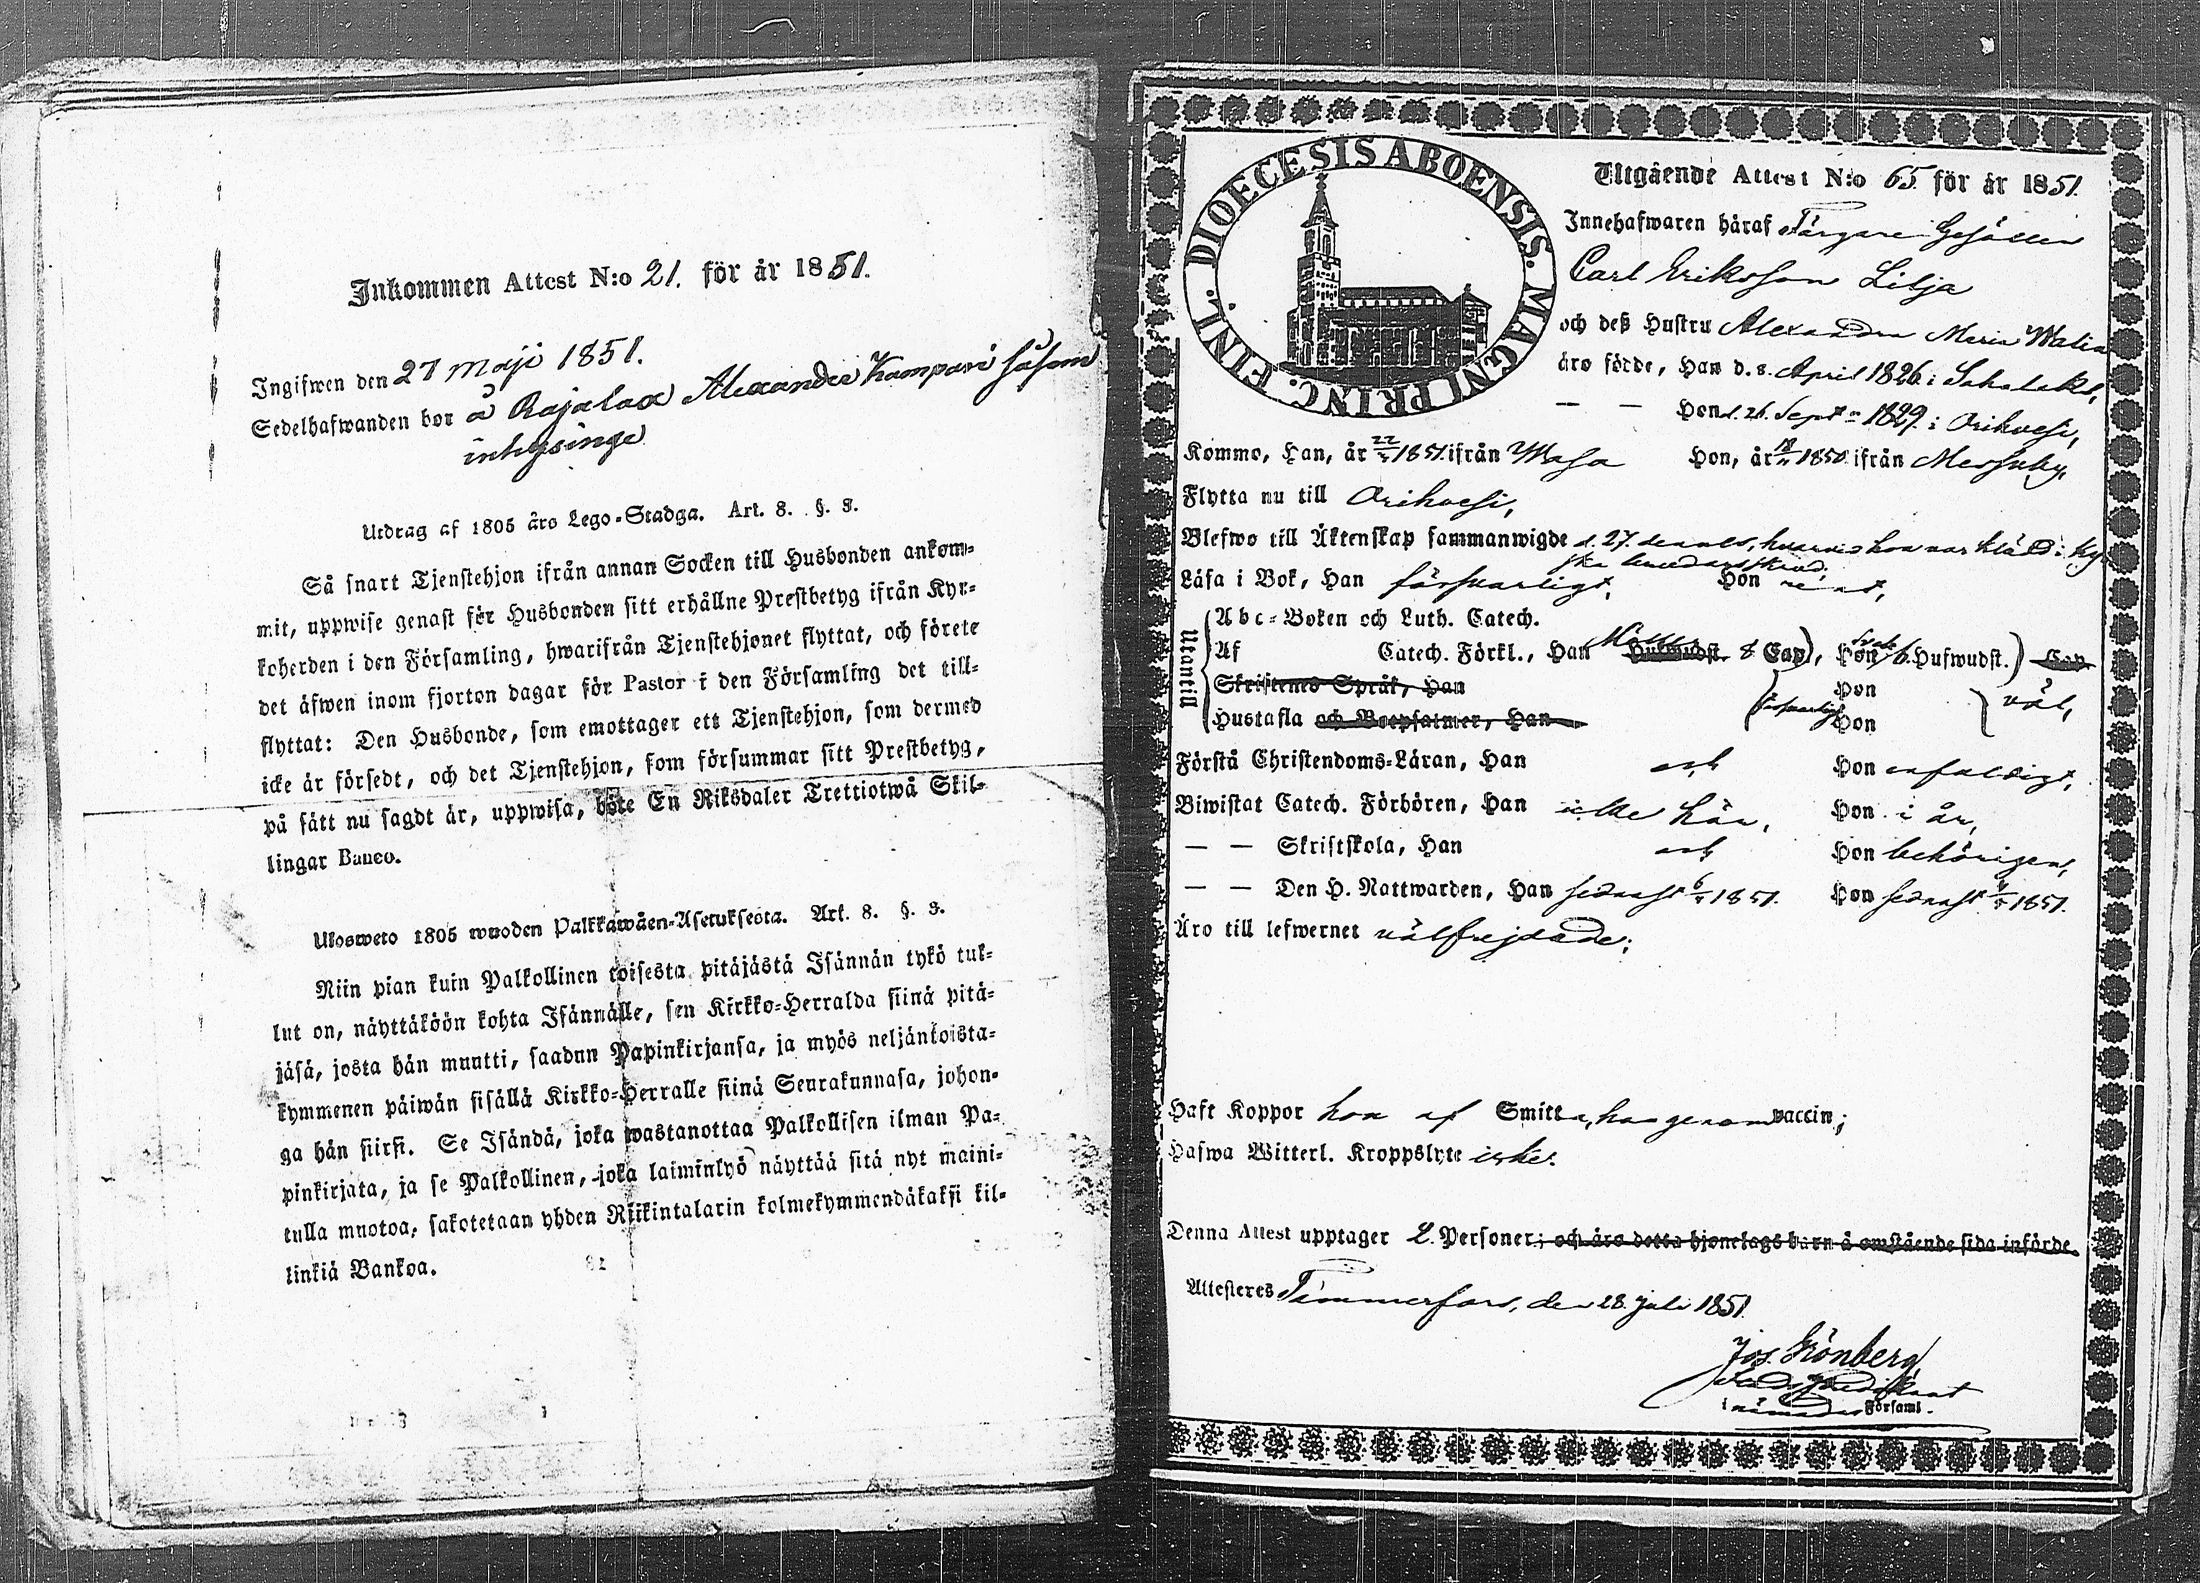 Inkommen Attest N:o 21. för år 1851.
Ingifwen den 27 Maji 1851.
Sedelhafwanden bor å Rajalax Alexander Kampari såsom
inhysinge
Utdrag af 1805 års Lego-Stadga. Art. 8. §. 3.
Så snart Tjenstehjon ifrån annan Socken till Husbonden ankom-
mit, uppwise genast för Husbonden sitt erhållne Prestbetyg ifrån Kyr-
koherden i den Församling, hwarifrån Tjenstehjonet flyttat, och förete
det äfwen inom fjorton dagar för Pastor i den Församling det till-
flyttat: Den Husbonde, som emottager ett Tjenstehjon, som dermed
icke är försedt, och det Tjenstehjon, som försummar sitt Prestbetyg,
på sätt nu sagdt är, uppwisa, böte En Riksdaler Trettiotwå Skil-
lingar Banco.
Ulosweto 1805 wuoden Palkkawäen-Asetuksesta. Art. 8. §. 3.
Niin pian kuin Palkollinen toisesta pitäjästä Isännän tykö tul-
lut on, näyttäköön kohta Isännälle, sen Kirkko-Herralda siinä pitä-
jäsä, josta hän muutti, saadun Papinkirjansa, ja myös neljäntoista-
kymmenen päiwän sisällä Kirkko-Herralle siinä Seurakunnasa, johon-
ga hän siirsi. Se Isändä, joka wastanottaa Palkollisen ilman Pa-
pinkirjata, ja se Palkollinen, joka laiminlyö näyttää sitä nyt maini-
tulla muotoa, sakotetaan yhden Riikintalarin kolmekymmendäkaksi kil-
linkiä Bankoa.
DIOECESIS ABOENSIS. MAGNI PRINC. FINL.
Utgående Attest N:o 65. för år 1851.
Innehafwaren häraf Färgare Gesällen
Carl Eriksson Lilja
och deß Hustru Alexandra Maria
äro födde, Han d. 8. April 1826 i Sahalaks,
— — Hon d. 26. Sept. 1829. i Orihvesi,
Kommo, Han, år 1851 ifrån Wasa Hon, år 1850 ifrån Messuby,
Flytta nu till Orihvesi,
Blefwo till Äktenskap sammanwigde d. 27. dennes, hvarvid hon var klädd i kyr-
ska brudarskrud.
Läsa i Bok, Han försvarligt, Hon rent,
Utantill
Abc-Boken och Luth. Catech.
Af Catech. Förkl., Han 8 Cap), Hon 6. Hufwudst.) Cap
Skriftenes Språk, Han Hon
Hustafla och Botpsalmer, Han försvarligt Hon väl,
Förstå Christendoms-Läran, Han och Hon enfaldigt,
Biwistat Catech. Förhören, Han icke här, Hon i år,
— — Skriftskola, Han och Hon behörigen,
— — Den H. Nattwarden, Han sednast 1851. Hon sednast 1851.
Äro till lefwernet välfrejdade;
Haft Koppor hon af Smitta, han genom vaccin;
Hafwa Witterl. Kroppslyte icke.
Denna Attest upptager 2. Personer; och äro detta hjonelags barn å omstående sida införde.
Attesteres Tammerfors, den 28. Juli 1851
Jos. Grönberg,
i nämnde Församl.